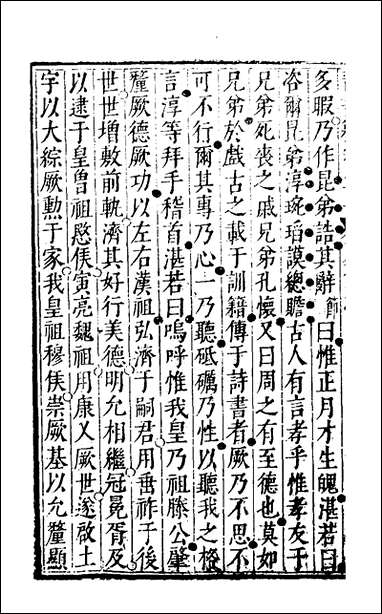 多暇乃作昆弟誥其辭節曰惟正月才生魄湛若曰
咨爾昆弟淳琬瑫謨總瞻古人有言孝乎惟孝友于
兄弟死喪之戚兄弟孔懷又曰周之有至德也莫如
兄弟於戲古之載于訓籍傳于詩書者厥乃不思不
可不行爾其專乃心一乃聽砥礪乃性以聽我之格
言淳等拜手稽首湛若曰嗚呼惟我皇乃祖滕公肇
釐厥德厥功以左右漢祖弘濟于嗣君用垂祚于後
世世增敷前軌濟其好行美德明允相繼冠冕胥及
以逮于皇曽祖愍侯寅亮魏祖用康乂厥世遂啟土
宇以大綜厥勲于家我皇祖穆侯崇厥基以允釐顯